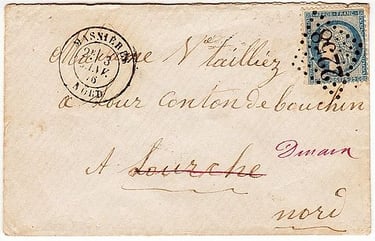 MASNIÈRES
2E
5
JANV.
76
NORD
FRANC
2238
Madame Ve Tailliez
a Lour Canton de bouchin
A Lourche Denain
nord